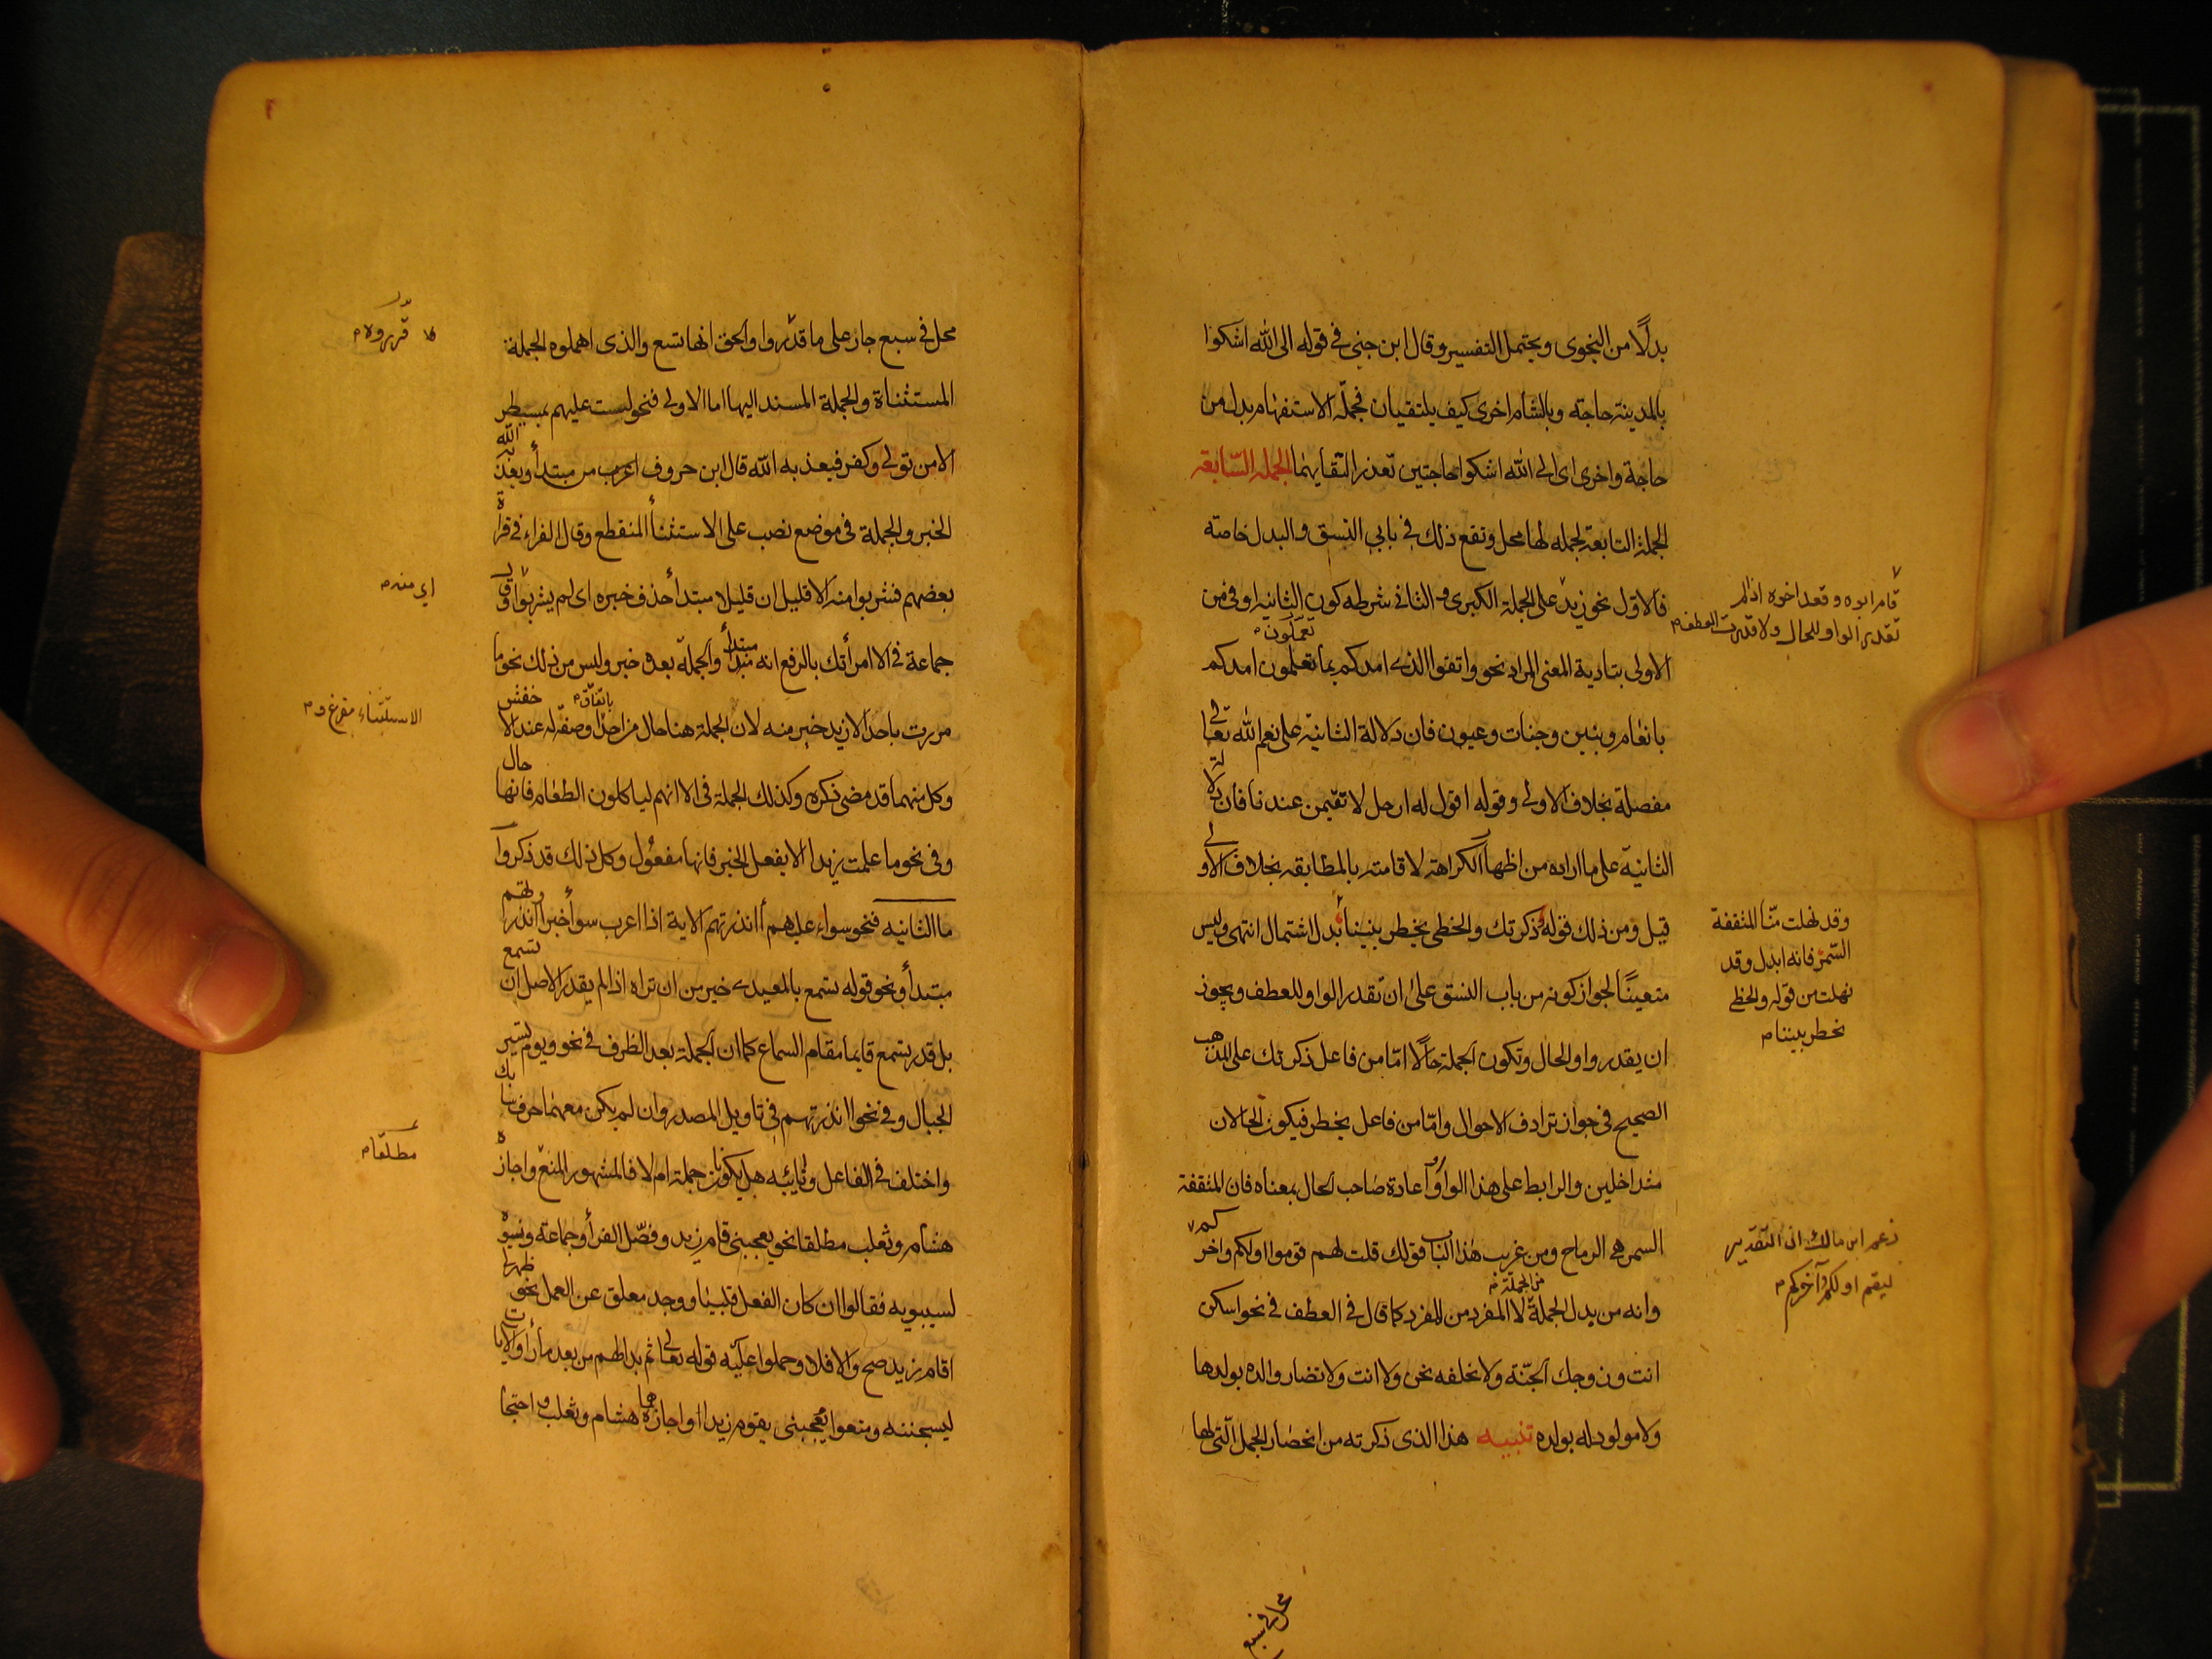 بدلًا من النجوى ويحتمل التفسير وقال ابن جنى فى قوله الى الله اشكوا
بالمدينة حاجته وبالشام اخرى كيف يلتقيان فجملة الاستفهام بدل من
حاجة واخرى اى الى الله اشكوا حاجتين تعذر التقايهما الجملة السّابعة
الجملة التابعة لجملة لها محل وتقع ذلك فى بابي النسق والبدل خاصّة
فالاوّل نحو زيد على الجملة الكبرى والثانى شرطه كون الثانية اوفى من
الاولى بتادية المعنى المراد نحو واتقوا الذى امدكم بما تعلمون امدكم
تعملون
بانعام وبنين وجنات وعيون فان دلالة الثانية على نعم الله تعالى
مفصلة بخلاف الاولى وقوله اقول له ارحل لا تقيمن عندنا فان دلالة
الثانية على ما اراده من اظهار الكراهة لاقامته بالمطابقه بخلاف الاولى
قيل ومن ذلك قوله ذكرتك والخطى يخطر بيننا بدل اشتمال انتهى وليس
متعينًا لجواز كونه من باب النسق على ان تقدر الواو للعطف ويجوز
ان يقدر واو الحال وتكون الجملة حالًا امّا من فاعل ذكرتك على المذهب
الصحيح فى جواز ترادف الاحوال وامّا من فاعل يخطر فيكون الحالان
متداخلين والرابط على هذا الواو واعادة صاحب الحال بمعناه فان المثقفة
السمر هى الرماح ومن غريب هذا الباب قولك قلت لهم قوموا اولكم واخركم
وانه من بدل الجملة لا المفرد من المفرد كما قال فى العطف فى نحو اسكن
من الجملة
انت وزوجك الجنّة ولا نخلفه نحن ولا انت ولا تضار والدة بولدها
ولا مولود له بولده تنبيه هذا الذى ذكرته من انحصار الجمل الّتى لها
قام ابوه وقعد اخوه اذا لم
تقدر الواو للحال ولا قدرت العطف
وقد نهلت منّا المثقفة
السّمر فانه ابدل وقد
نهلت من قوله والخطى
يخطر بيننا م
زعم ابن مالك ان التقدير
ليقم اولكم وآخركم م
محل فى سبع
محل فى سبع جاز على ما قدّروا والحق انها تسع والذى اهملوه الجملة
المستثناة والجملة المسند اليها اما الاولى فنحو لست عليهم بمسيطر
الا من تولى وكفر فيعذبه الله قال ابن خروف اعرب من مبتدأ ويعذبه الله
الخبر والجملة فى موضع نصب على الاستثنا المنقطع وقال الفراء فى قراة
بعضهم فشربوا منه الا قليل ان قليل مبتدأ حذف خبره اى لم يشربوا وقال
جماعة فى الا امرأتك بالرفع انه مبتدأ والجملة بعده خبر وليس من ذلك نحو ما
مررت باحد الا زيد خير منه لان الجملة هنا حال من احد او صفة له عند الاخفش
باتفاق م
وكل منهما قد مضى ذكره وكذلك الجملة فى الا انهم لياكلون الطعام فانها حال
وفى نحو ما علمت زيدا الا يفعل الخير فانها مفعول وكل ذلك قد ذكروا
ما الثانيه فنحو سواء عليهم أانذرتهم الاية اذا اعرب سوأ خبرا أانذرتهم
مبتدأ ونحو قوله تسمع بالمعيدى خير من ان تراه اذا لم يقدر الاصل ان تسمع
بل قدر تسمع قايما مقام السماع كما ان الجملة بعد الظرف فى نحو ويوم تسير
الجبال وفى نحو أانذرتهم فى تاويل المصدر وان لم يكن معهما حرف سابك
واختلف فى الفاعل ونايبه هل يكونان جملة ام لا فالمشهور المنع واجازه
هشام وثعلب مطلقا نحو يعجبنى قام زيد وفصّل الفرأ وجماعة ونسبوه
لسيبويه فقالوا ان كان الفعل قلبيا ووجد معلق عن العمل نحو ظهر لى
اقام زيد صح والا فلا وحملوا عليه قوله تعالى ثم بدا لهم من بعد ما رأوا الايات
ليسجننه ومنعوا يعجبنى يقوم زيد واجازهما هشام وثعلب واحتجا
قرروه م
اى منه م
الاستثناء مفرغ و م
مطلقا م